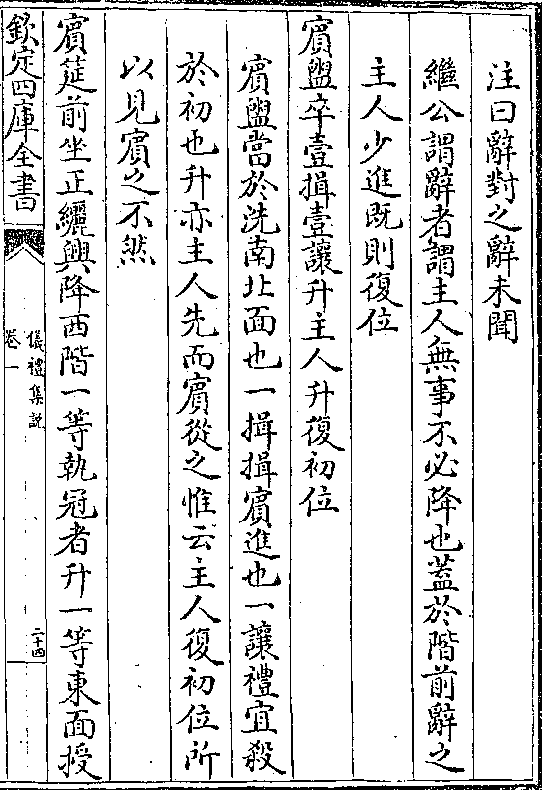 注曰辭對之辭未聞
繼公謂辭者謂主人無事不必降也蓋於階前辭之
主人少進既則復位
賓盥卒壹揖壹讓升主人升復初位
賓盥當於洗南北面也一揖揖賓進也一讓禮宜殺
於初也升亦主人先而賓從之惟云主人復初位所
以見賓之不然
賓筵前坐正纚興降西階一等執冠者升一等東面授
欽定四庫全書
儀禮集說
卷一
二十四